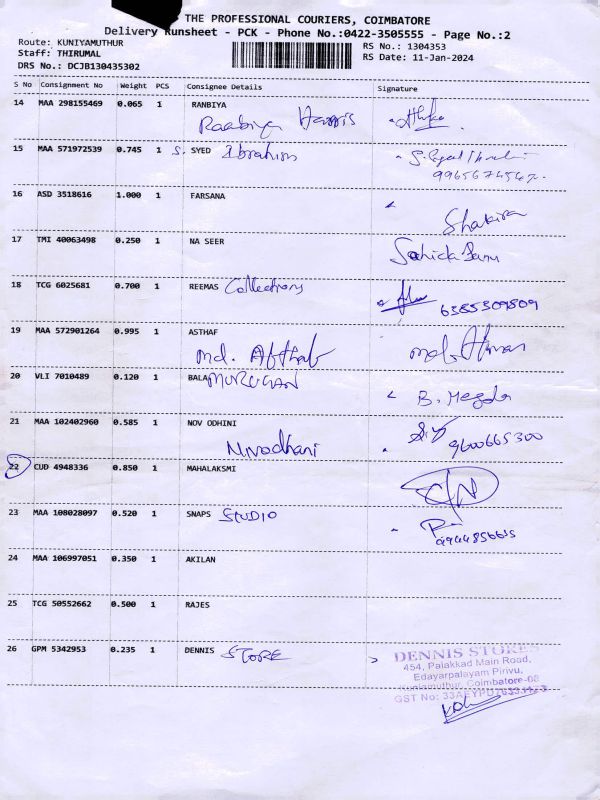 THE PROFESSIONAL COURIERS, COIMBATORE
Delivery Runsheet - PCK - Phone No.:0422-3505555 - Page No.:2
Route: KUNIYAMUTHUR
RS No.: 1304353
Staff: THIRUMAL
RS Date: 11-Jan-2024
DRS No.: DCJB130435302
S No Consignment No Weight PCS Consignee Details Signature
14 MAA 298155469 0.065 1 RANBIYA
Raabiya Harris
15 MAA 571972539 0.745 1 S. SYED Ibrahim
S. Syed Ibrahim
16 ASD 3518616 1.000 1 FARSANA
Shakira
17 TMI 40063498 0.250 1 NA SEER
18 TCG 6025681 0.700 1 REEMAS Collections
6385309809
19 MAA 572901264 0.995 1 ASTHAF
Md. Afthab
20 VLI 7010489 0.120 1 BALA MURUGAN
B. Megala
21 MAA 102402960 0.585 1 NOV ODHINI
9600665300
Nivodhani
22 CUD 4948336 0.850 1 MAHALAKSMI
23 MAA 108028097 0.520 1 SNAPS STUDIO
24 MAA 106997051 0.350 1 AKILAN
25 TCG 50552662 0.500 1 RAJES
26 GPM 5342953 0.235 1 DENNIS STORE
DENNIS STORES
454, Palakkad Main Road,
Edayarpalayam Pirivu,
Kuniamuthur, Coimbatore-08
GST No: